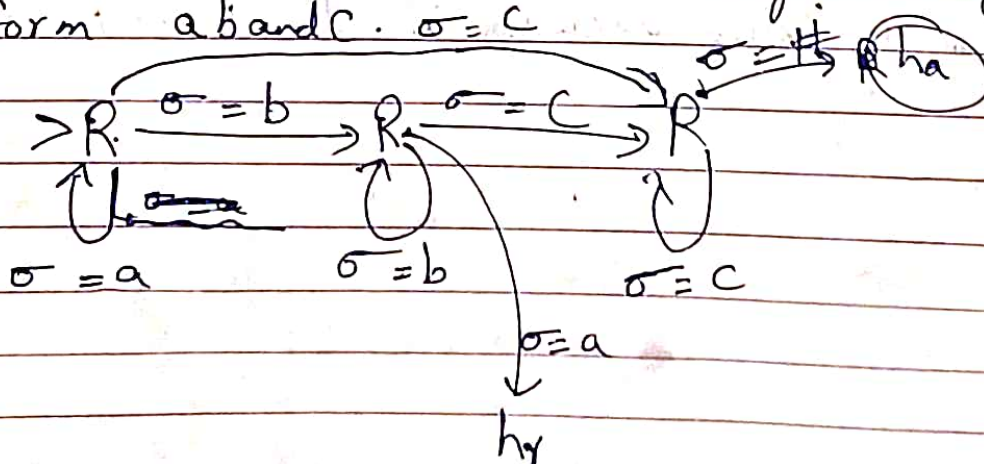 orm a b and C. σ = C
σ = # ha
> R σ = b R σ = C R
σ = a σ = b σ = C
σ = a
hr